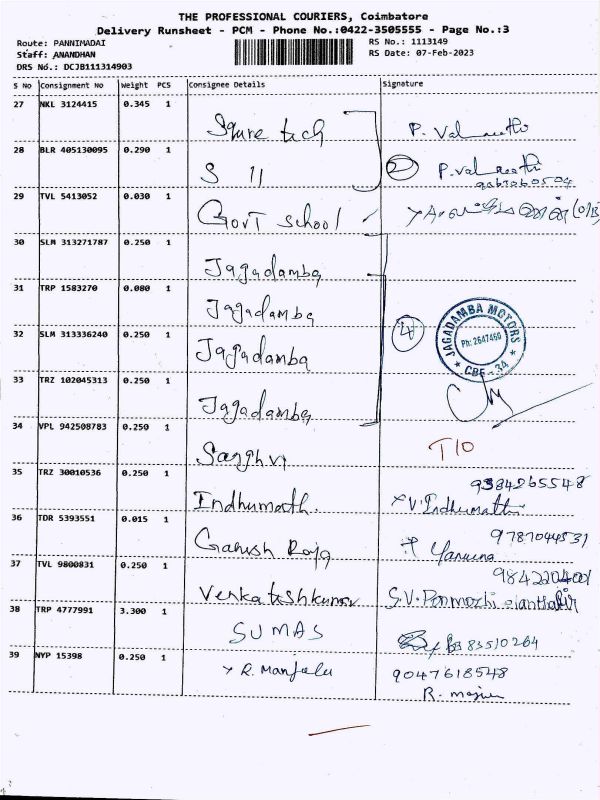 THE PROFESSIONAL COURIERS, Coimbatore
Delivery Runsheet - PCM - Phone No.:0422-3505555 - Page No.:3
Route: PANNIMADAI
Staff: ANANDHAN
DRS No.: DCJB111314903
RS No.: 1113149
RS Date: 07-Feb-2023
S No Consignment No Weight PCS Consignee Details Signature
27 NKL 3124415 0.345 1 Squre tech P.
28 BLR 405130095 0.290 1 S 11 2 P.
29 TVL 5413052 0.030 1 Govt School
30 SLM 313271787 0.250 1 Jagadamba
31 TRP 1583270 0.080 1 Jagadamba
32 SLM 313336240 0.250 1 Jagadamba 4
JAGADAMBA MOTORS
Ph: 2647466
CBE - 34
33 TRZ 102045313 0.250 1 Jagadamba
34 VPL 942508783 0.250 1 Sanghvi T10
35 TRZ 30010536 0.250 1 Indhumath. 9384265548
V. Indhumathi
36 TDR 5393551 0.015 1 Ganish Raja 9787044531
37 TVL 9800831 0.250 1 Venkateshkumar 9842204001
S.V. Ponmozhi
38 TRP 4777991 3.300 1 SUMAS
39 NYP 15398 0.250 1 R. Manjula 9047618548
R.